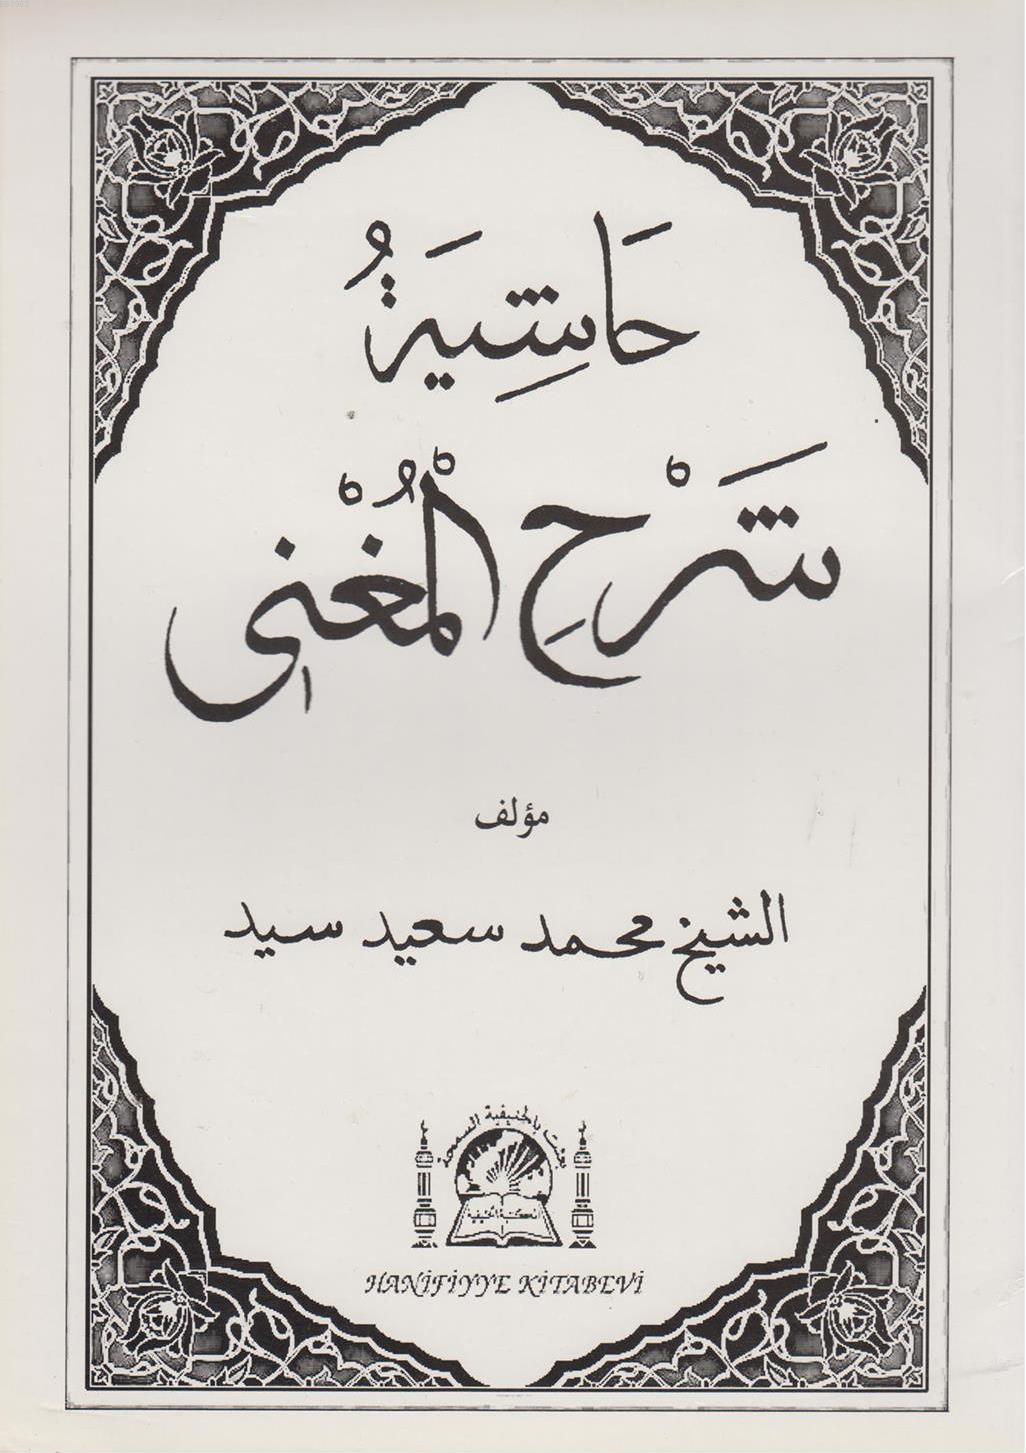 حَاشِيَةُ
شَرْحِ الْمُغْنِى
مؤلف
الشيخ محمد سعيد سيد
بعثت بالحنيفية السمحة
HANİFİYYE KİTABEVİ